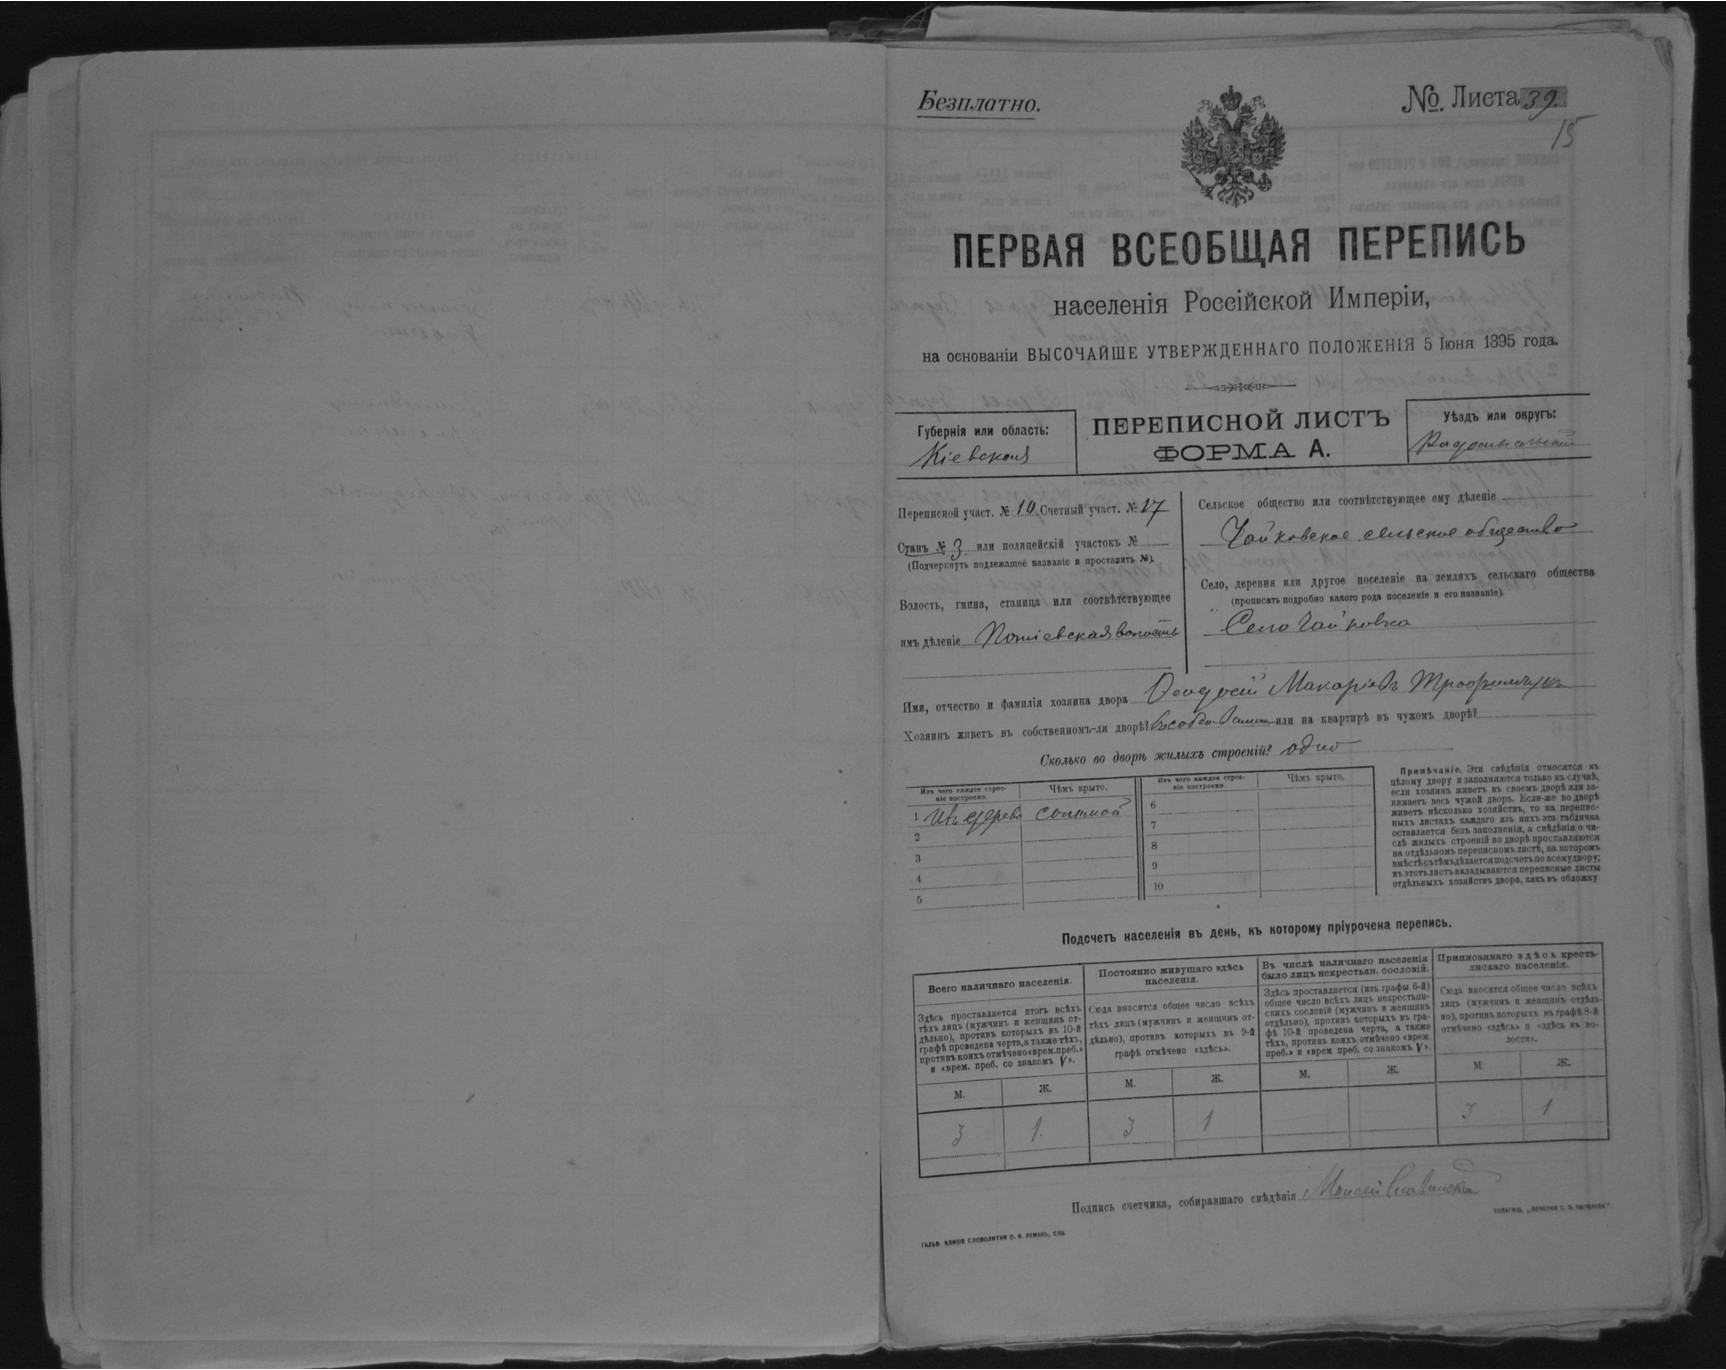 Безплатно.
№. Листа 39.
15
ПЕРВАЯ ВСЕОБЩАЯ ПЕРЕПИСЬ
населенія Россійской Имперіи,
на основаніи ВЫСОЧАЙШЕ УТВЕРЖДЕННАГО ПОЛОЖЕНІЯ 5 Іюня 1895 года.
Губернія или область:
Кіевская
ПЕРЕПИСНОЙ ЛИСТЪ
ФОРМА А.
Уѣздъ или округъ:
Радомысльскій
Переписной участ. № 10 Счетный участ. № 17
Станъ № 3 или полицейскій участокъ №
(Подчеркнуть подлежащее названіе и проставить №).
Волость, гмина, станица или соотвѣтствующее
имъ дѣленіе Потіевская волость
Сельское общество или соотвѣтствующее ему дѣленіе
Чайковское сельское общество
Село, деревня или другое поселеніе на земляхъ сельскаго общества
(прописать подробно какого рода поселеніе и его названіе).
Село Чайковка
Имя, отчество и фамилія хозяина двора Ѳеодосій Макаріевъ Трофимчукъ
Хозяинъ живетъ въ собственномъ-ли дворѣ? или на квартирѣ въ чужомъ дворѣ?
Сколько во дворѣ жилыхъ строеній? одно
Изъ чего каждое строе-
ніе построено.
Чѣмъ крыто.
1 Изъ дерева соломой
2
3
4
5
Изъ чего каждое строе-
ніе построено
Чѣмъ крыто.
6
7
8
9
10
Примѣчаніе. Эти свѣдѣнія относятся къ
цѣлому двору и заполняются только въ случаѣ,
если хозяинъ живетъ въ своемъ дворѣ или за-
нимаетъ весь чужой дворъ. Если-же во дворѣ
живетъ нѣсколько хозяйствъ, то на перепис-
ныхъ листахъ каждаго изъ нихъ эта табличка
оставляется безъ заполненія, а свѣдѣнія о чи-
слѣ жилыхъ строеній во дворѣ проставляются
на отдѣльномъ переписномъ листѣ, на которомъ
вмѣстѣ съ тѣмъ дѣлается подсчетъ по всему двору;
въ этотъ листъ вкладываются переписные листы
отдѣльныхъ хозяйствъ двора, какъ въ обложку
Подсчетъ населенія въ день, къ которому пріурочена перепись.
Всего наличнаго населенія.
Здѣсь проставляется итогъ всѣхъ
тѣхъ лицъ (мужчинъ и женщинъ от-
дѣльно), противъ которыхъ въ 10-й
графѣ проведена черта, а также тѣхъ,
противъ коихъ отмѣчено «врем. преб.»
и «врем. преб. со знакомъ V».
М. Ж.
3 1
Постоянно живущаго здѣсь
населенія.
Сюда вносится общее число всѣхъ
тѣхъ лицъ (мужчинъ и женщинъ от-
дѣльно), противъ которыхъ въ 9-й
графѣ отмѣчено «здѣсь».
М. Ж.
3 1
Въ числѣ наличнаго населенія
было лицъ некрестьян. сословій.
Здѣсь проставляется (изъ графы 6-й)
общее число всѣхъ лицъ некрестьян-
скихъ сословій (мужчинъ и женщинъ
отдѣльно), противъ которыхъ въ гра-
фѣ 10-й проведена черта, а также
тѣхъ, противъ коихъ отмѣчено «врем.
преб.» и «врем преб. со знакомъ V».
М. Ж.
Приписаннаго здѣсь кресть-
янскаго населенія.
Сюда вносится общее число всѣхъ
лицъ (мужчинъ и женщинъ отдѣль-
но), противъ которыхъ въ графѣ 8-й
отмѣчено «здѣсь» и «здѣсь въ во-
лости».
М. Ж.
3 1
Подпись счетчика, собиравшаго свѣдѣнія Моисей
ГАЛЬВ. КЛИШЕ СЛОВОЛИТНИ О. И. ЛЕМАНЪ, СПБ